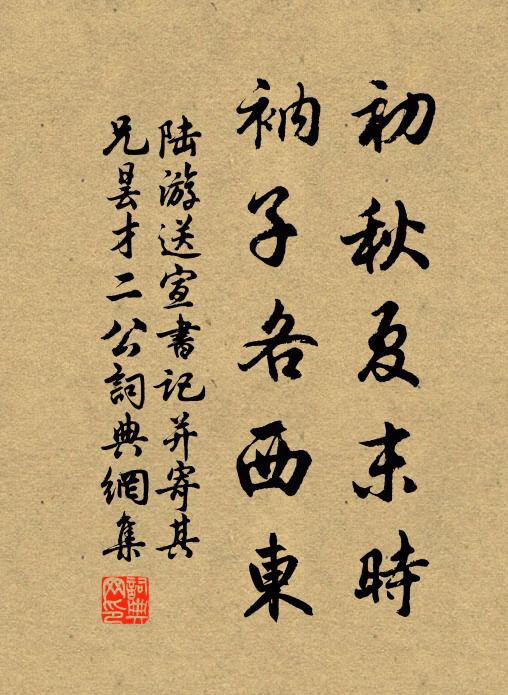 初秋夏末時
衲子各西東
陸游送宣書記并寄其
兄曇才二公詞典網集
詞典
网印